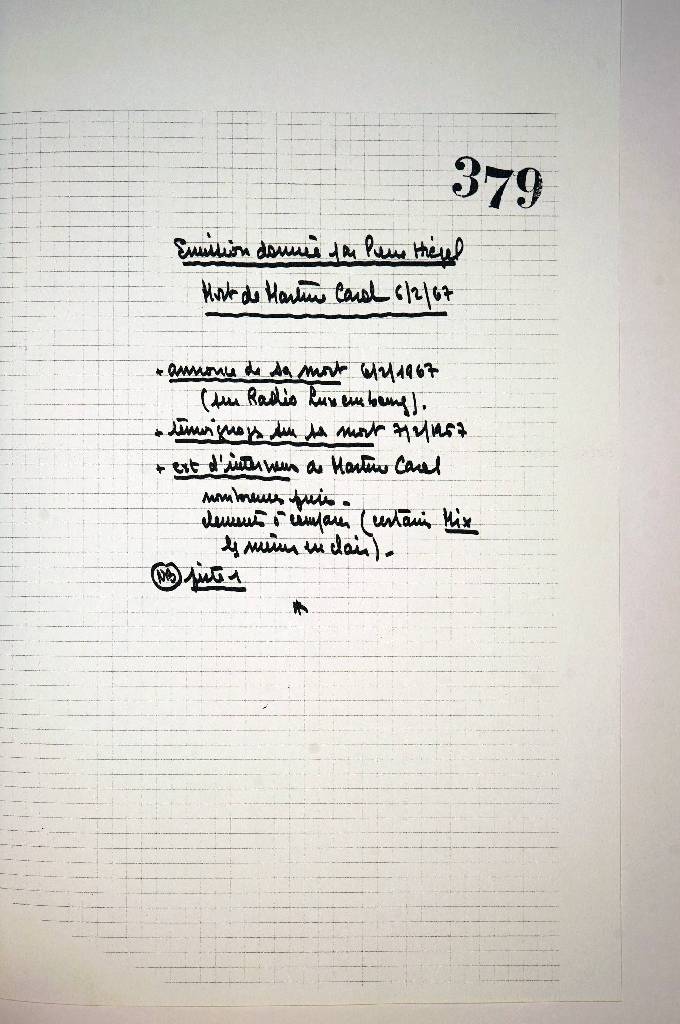 379
Emission donnée par Pierre Hiégel
Mort de Martine Carol 6/2/67
* annonce de sa mort 6/2/1967
(sur Radio Luxembourg).
* témoignages sur sa mort 7/2/1967
* ext d'interview de Martine Carol
nombreuses
elements à comparer (certains Mix
les mêmes en clair).
NB piste 1
*